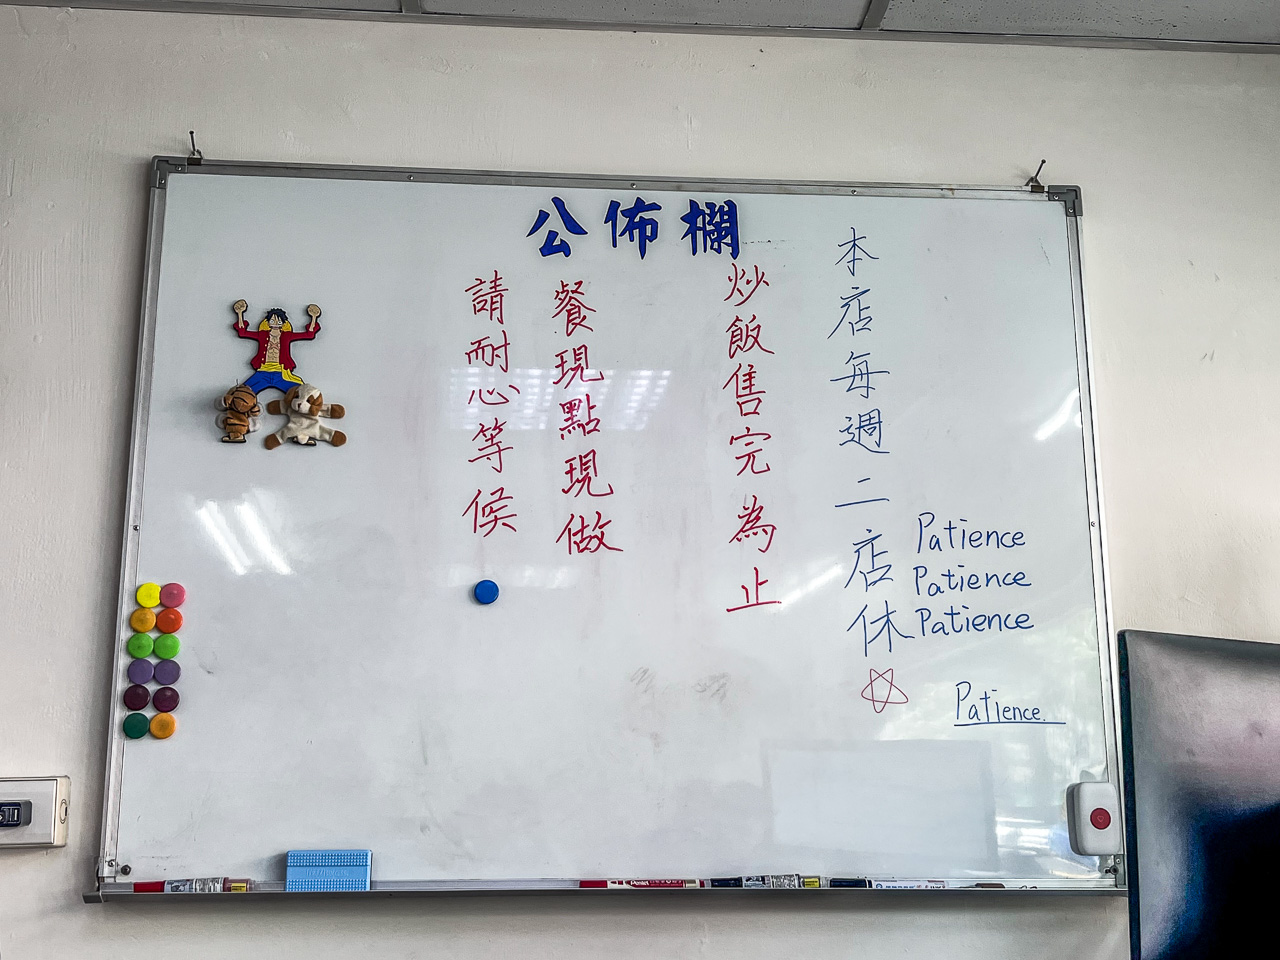 公佈欄
本店每週二店休
炒飯售完為止
餐現點現做
請耐心等候
Patience
Patience
Patience
Patience.
Pentel